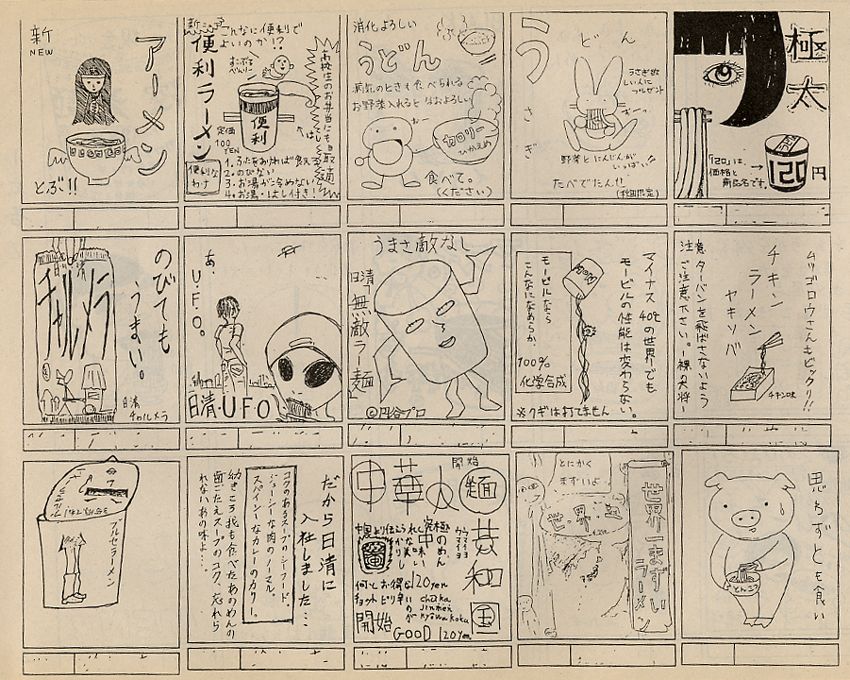 新
NEW
アーメン
とぶ!!
こんなに便利で
よいのか!?
便利ラーメン
便利
定価
100
YEN
便利な
わけ
1.ふたをあければ食べ
2.のびない
3.お湯が冷めない
4.お湯・はし付き!
消化よろしい
うどん
病気のときもたべられる
お野菜入れるとなおよろしい
カロリー
ひかえめ
食べて。
(ください)
うさぎ
どん
野菜とにんじんが
いっぱい!!
たべてたんせ
極太
「120」は、
価格と
商品名です。
120円
のびても
うまい。
日清
チャルメラ
日清
チャルメラ
あ、
U.F.O.
日清・UFO
うまさ敵なし
日清
無敵ラー麺
©円谷プロ
マイナス40℃の世界でも
モービルの性能は変わらない。
モービルなら
こんなになめらか。
100%
化学合成
※クギは打てません。
ムツゴロウさんもビックリ!!
チキン
ラーメン
ヤキソバ
チキン味
注意 ターバンを飛ばさないよう
ご注意下さい。―裸の大将―
ブルセラーメン
だから日清に
入社しました…
コクのあるスープのシーフード。
ジューシーな肉のノーマル。
スパイシーなカレーのカリー。
幼きころ我も食べたあのめんの
歯ごたえスープのコク、忘れら
れないあの味よ…
開始
中華人麺共和国
究極のめん
ウマイヨ
ウマイヨ
何とお得な120yen
チョットピリ辛い
chuka
jinmin
kyowakoku
開始
GOOD 120yen
とにかく
まずいよ
世界一
世界一まずい
ラーメン
思わずとも食い
とんこつ